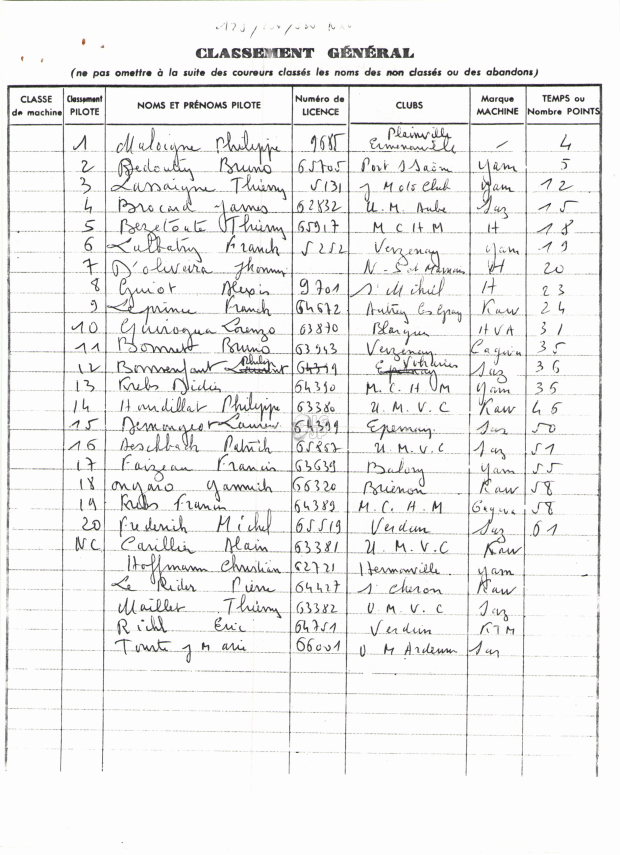 CLASSEMENT GÉNÉRAL
(ne pas omettre à la suite des coureurs classés les noms des non classés ou des abandons)
CLASSE de machine Classement PILOTE NOMS ET PRÉNOMS PILOTE Numéro de LICENCE CLUBS Marque MACHINE TEMPS ou Nombre POINTS
1 Maloigne Philippe 9685 Plainville 4
2 Bedouty Bruno 65705 Port S Saône yam 5
3 Lassaigne Thierry 5131 J Moto Club yam 12
4 Brocard James 62832 U. M. Aube Suz 15
5 Bezetoute Thierry 65917 M C H M H 18
6 Lalbatry Franck 5252 Verzenay yam 19
7 D'oliveira Jhonny H 20
8 Guiot Alexis 9701 S. Mihiel H 23
9 Leprince Franck 64672 Kaw 24
10 Lorenzo 63870 HVA 31
11 Bonnet Bruno 63943 Verzenay Cagiva 35
12 Bonnenfant Philip Vitriers Suz 36
13 Krebs Didier 64390 M. C. H M yam 36
14 Houdillat Philippe 63380 U. M. V. C Kaw 46
15 Demongeot Laurent 64399 Epernay Suz 50
16 Aeschbach Patrick 65867 U. M. V. C Suz 51
17 Faizeau Francis 63639 yam 55
18 ongaro yannick 66320 Brienon Kaw 58
19 Krebs Francis 64389 M. C. H. M Cagiva 58
20 Frederich Michel 65519 Verdun Suz 61
NC Carillier Alain 63381 U. M. V. C Kaw
Hoffmann Christian 62721 Hermonville yam
Le Rider Pierre 64427 S. Cheron Kaw
Maillet Thierry 63382 U. M. V. C Suz
Richl Eric 64751 Verdun KTM
Tourte J Marie 66001 U M Ardenn Suz